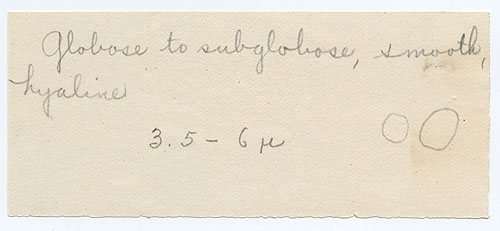 Globose to subglobose, smooth,
hyaline
3.5 - 6 µ